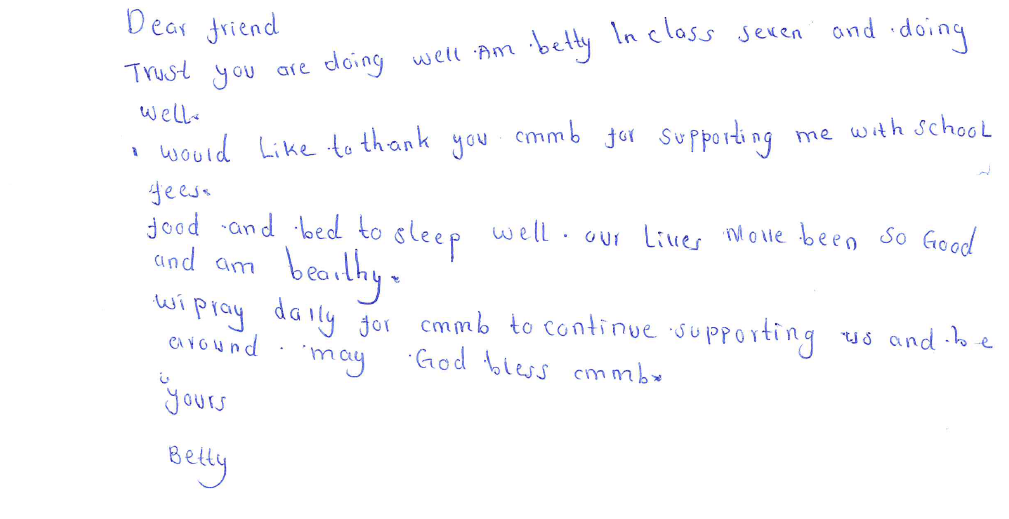 Dear friend
Trust you are doing well Am betty In class seven and doing
well.
I would Like to thank you cmmb for supporting me with school
fees.
food and bed to sleep well. our Lives Move been so Good
and am beailhy.
wi pray daily for cmmb to continue supporting us and be
around. may God bless cmmb.
yours
Betty